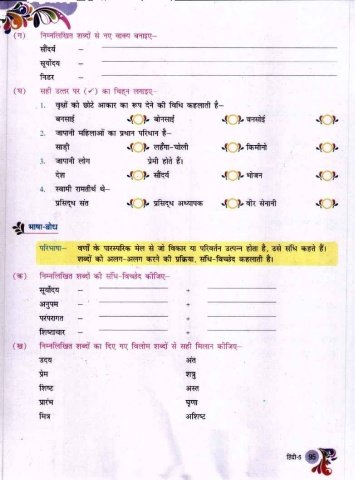 (ग) निम्नलिखित शब्दों से नए वाक्य बनाइए–
सौंदर्य –
सूर्योदय –
निडर –
(घ) सही उत्तर पर (✓) का चिह्न लगाइए–
1. वृक्षों को छोटे आकार का रूप देने की विधि कहलाती है–
बनसाई बोनसाई वनसोई
2. जापानी महिलाओं का प्रधान परिधान है–
साड़ी लहँगा-चोली किमोनो
3. जापानी लोग प्रेमी होते हैं।
देश सौंदर्य भोजन
4. स्वामी रामतीर्थ थे–
प्रसिद्ध संत प्रसिद्ध अध्यापक वीर सेनानी
भाषा-बोध
परिभाषा– वर्णों के पारस्परिक मेल से जो विकार या परिवर्तन उत्पन्न होता है, उसे संधि कहते हैं।
शब्दों को अलग-अलग करने की प्रक्रिया, संधि-विच्छेद कहलाती है।
(क) निम्नलिखित शब्दों की संधि-विच्छेद कीजिए–
सूर्योदय – +
अनुपम – +
परंपरागत – +
शिष्टाचार – +
(ख) निम्नलिखित शब्दों का दिए गए विलोम शब्दों से सही मिलान कीजिए–
उदय अंत
प्रेम शत्रु
शिष्ट अस्त
प्रारंभ घृणा
मित्र अशिष्ट
हिंदी-5 95